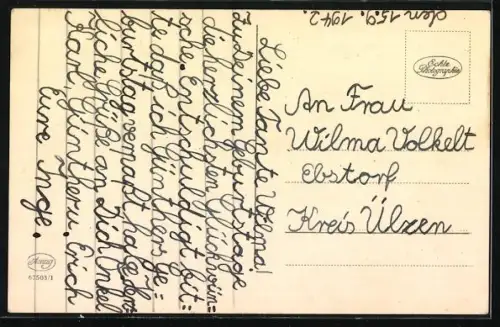 den 15.9. 1942.
Liebe Tante Wilma!
Zu Deinem Geburtstage
die herzlichsten Glückwün=
sche. Entschuldigt bit=
te daß ich Günthers Ge=
burtstag vermaßt hab. Herz=
liche Grüße an Dich Onkel
Karl, Günther u. Erich
Eure Inge.
Echte
Photographie
An Frau
Wilma Volkelt
Ebstorf
Kreis Ülzen